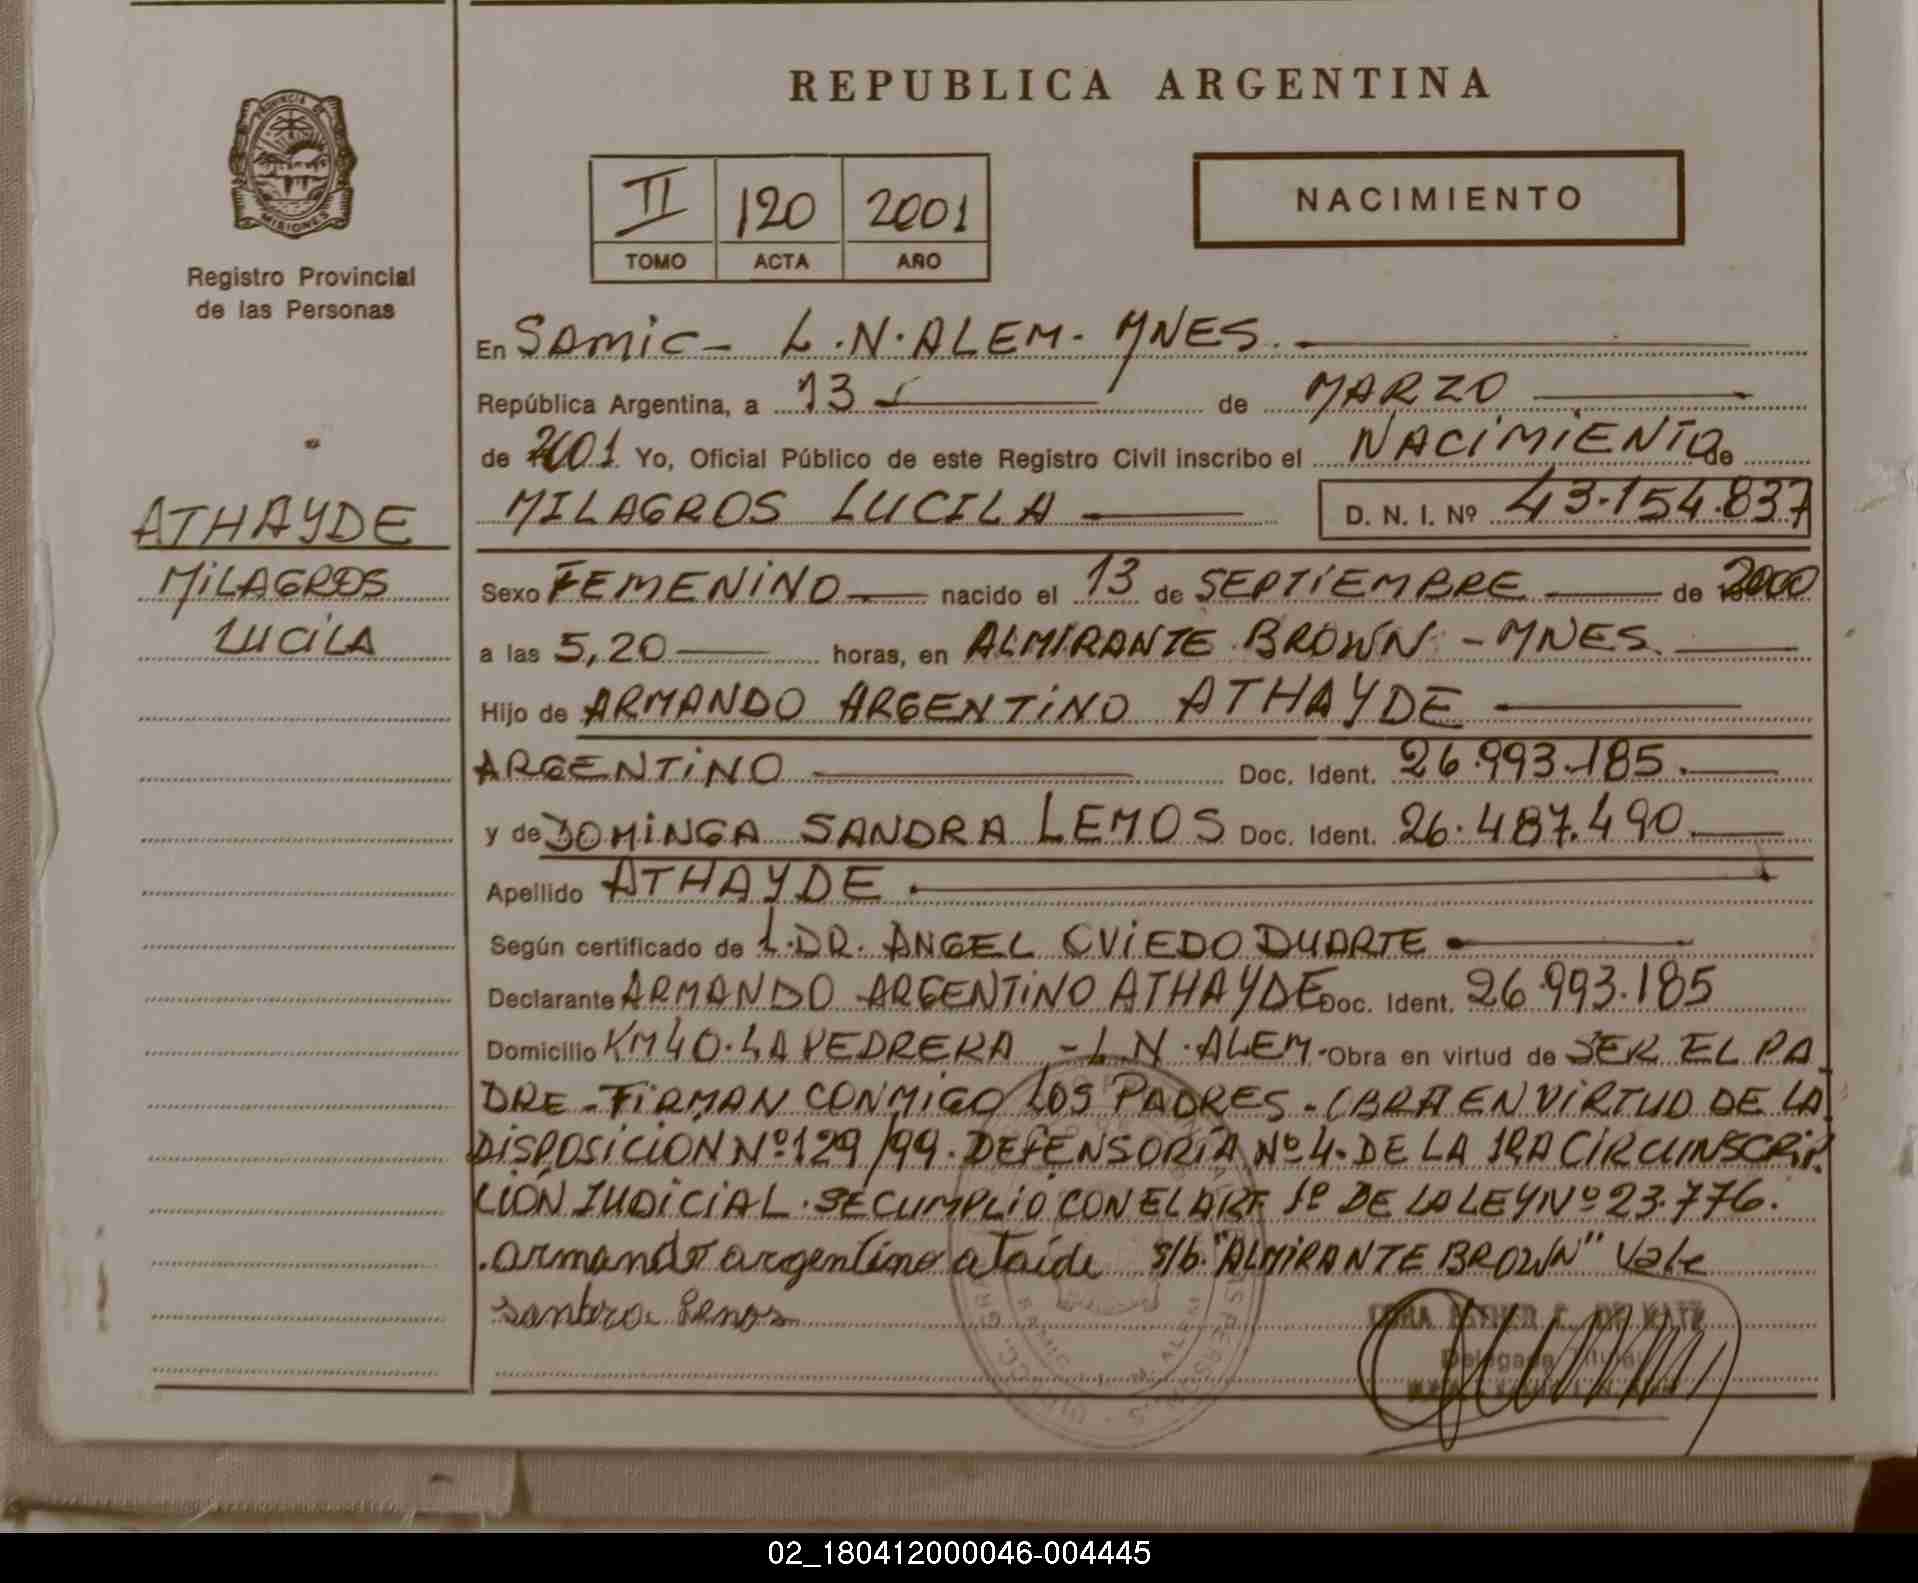 REPUBLICA ARGENTINA
PROVINCIA DE
MISIONES
Registro Provincial
de las Personas
II 120 2001
TOMO ACTA AÑO
NACIMIENTO
ATHAYDE
MILAGROS
LUCILA
En SAMIC - L.N. ALEM - MNES.
República Argentina, a 13 de MARZO
de 2001 Yo, Oficial Público de este Registro Civil inscribo el NACIMIENTO de
MILAGROS LUCILA D. N. I. Nº 43.154.837
Sexo FEMENINO nacido el 13 de SEPTIEMBRE de 2000
a las 5,20 horas, en ALMIRANTE BROWN - MNES
Hijo de ARMANDO ARGENTINO ATHAYDE
ARGENTINO Doc. Ident. 26.993.185.
y de DOMINGA SANDRA LEMOS Doc. Ident. 26.487.490
Apellido ATHAYDE
Según certificado de 1. DR. ANGEL OVIEDO DUARTE
Declarante ARMANDO ARGENTINO ATHAYDE Doc. Ident. 26.993.185
Domicilio KM 40. LA PEDRERA - L N. ALEM. Obra en virtud de SER EL PA
DRE - FIRMAN CONMIGO LOS PADRES - OBRA EN VIRTUD DE LA
DISPOSICIÓN Nº 129/99. DEFENSORÍA Nº 4. DE LA 1RA CIRCUNSCRIP.
CIÓN JUDICIAL. SE CUMPLIÓ CON EL ART 1º DE LA LEY Nº 23.776.
armando argentino ataide s/b. "ALMIRANTE BROWN" Vale
Sandra Lemos
Delegada Titular
02_180412000046-004445